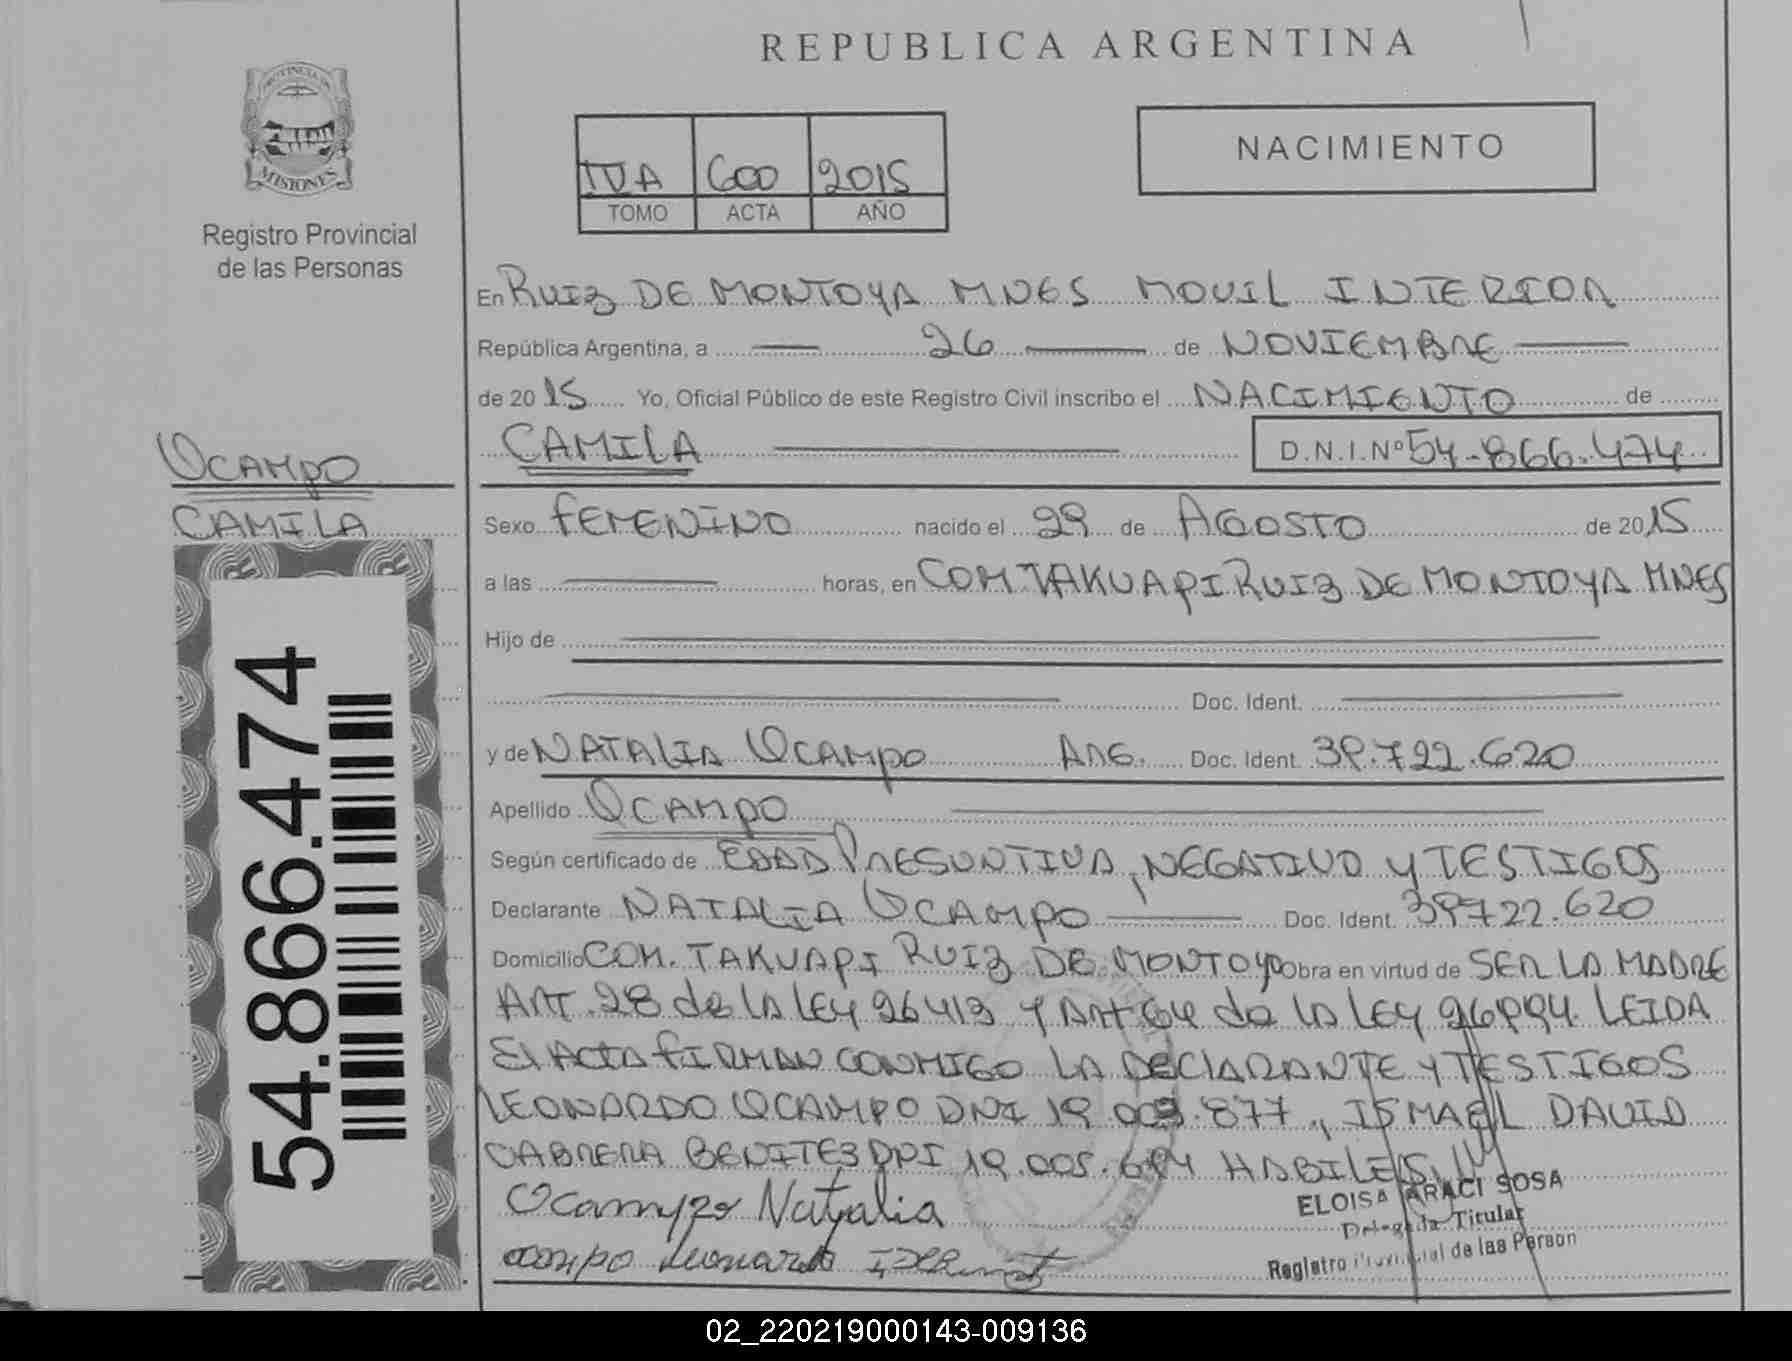 REPUBLICA ARGENTINA
PROVINCIA DE
MISIONES
Registro Provincial
de las Personas
IVA 600 2015
TOMO ACTA AÑO
NACIMIENTO
En RUIZ DE MONTOYA MNES MOVIL INTERIOR
República Argentina, a 26 de NOVIEMBRE
de 2015 Yo, Oficial Público de este Registro Civil inscribo el NACIMIENTO de
CAMILA D.N.I.Nº 54.866.474
OCAMPO
CAMILA
54.866.474
Sexo FEMENINO nacido el 29 de AGOSTO de 2015
a las horas, en COM TAKUAPI RUIZ DE MONTOYA MNES
Hijo de
Doc. Ident.
y de NATALIA OCAMPO ARG. Doc. Ident. 39.722.620
Apellido OCAMPO
Según certificado de EDAD PRESUNTIVA, NEGATIVO Y TESTIGOS
Declarante NATALIA OCAMPO Doc. Ident. 39722.620
Domicilio COM. TAKUAPI RUIZ DE MONTOYA Obra en virtud de SER LA MADRE
ART. 28 de LA LEY 26413 Y ART 64 de LA LEY 26994. LEIDA
El ACTA FIRMAN CONMIGO LA DECLARANTE Y TESTIGOS
LEONARDO OCAMPO DNI 19.009.877, ISMAEL DAVID
CABRERA BENITEZ DNI 19.005.694 HABILES
Ocampo Natalia
ocampo leonardo
ELOISA ARACI SOSA
Delegada Titular
Registro Provincial de las Person
02_220219000143-009136